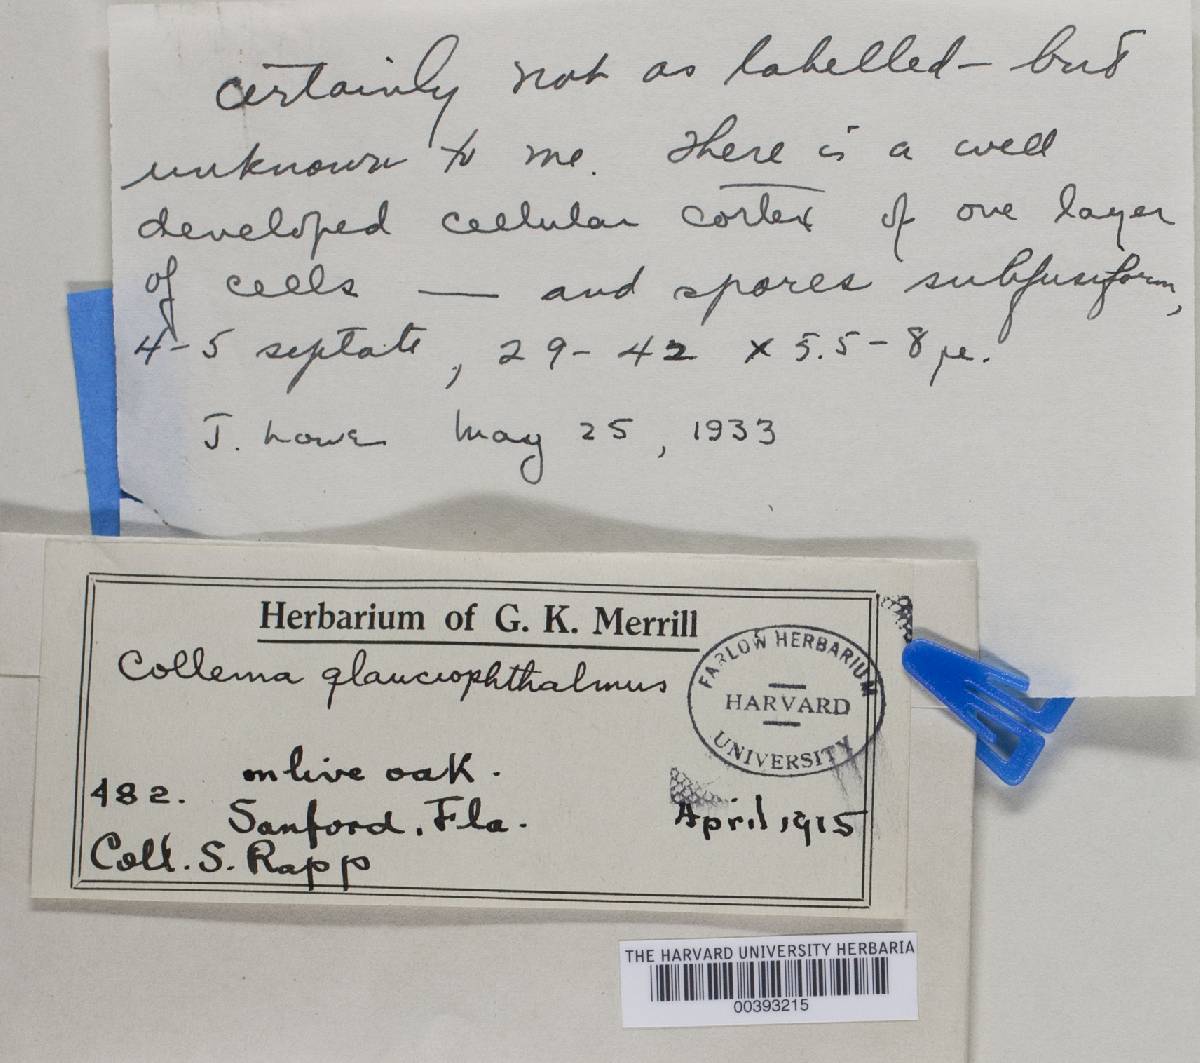 certainly not as labelled – but
unknown to me. There is a well
developed cellular cortex of one layer
of cells — and spores subfusiform,
4-5 septate, 29-42 x 5.5-8 µ.
J. Lowe May 25, 1933
Herbarium of G. K. Merrill
Collema glaucophthalmus
FARLOW HERBARIUM
HARVARD
UNIVERSITY
on live oak.
482.
Sanford, Fla.
April 1915
Coll. S. Rapp
THE HARVARD UNIVERSITY HERBARIA
00393215